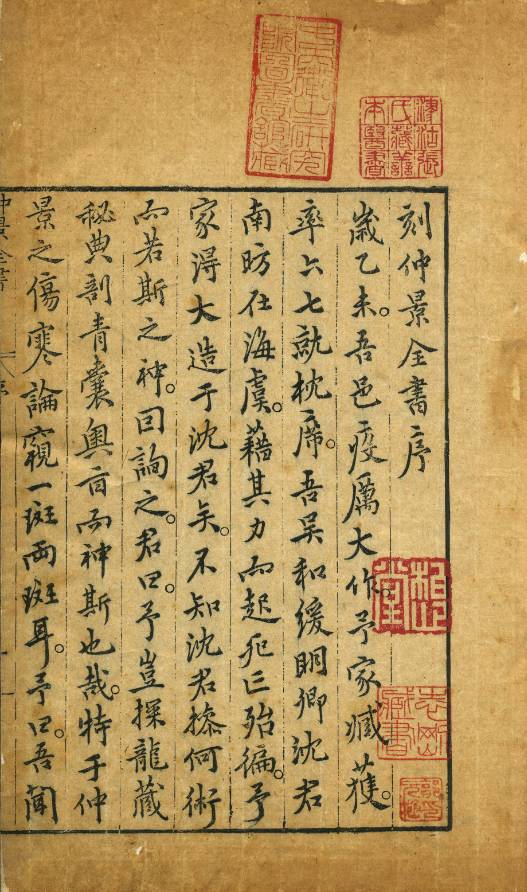 刻仲景全書序
歲乙未。吾邑疫厲大作。予家臧獲。
率六七就枕席。吾吳和緩明卿沈君
南昉在海虞。藉其力而起死亡殆徧。予
家得大造于沈君矣。不知沈君操何術
而若斯之神。因詢之。君曰。予豈探龍藏
秘典剖青囊奧旨而神斯也哉。特于仲
景之傷寒論窺一斑兩斑耳。予曰。吾聞
仲景全書
序
中國中醫研究院圖書館藏
氏藏善本醫書